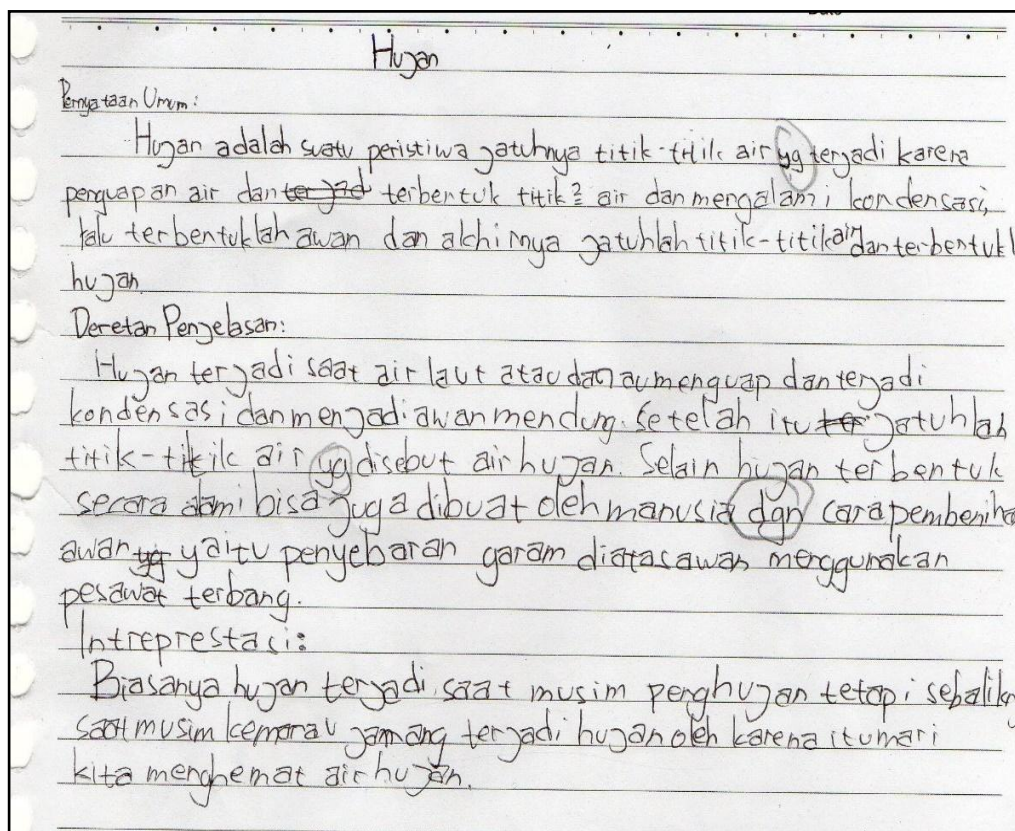 Hujan
Pernyataan Umum:
Hujan adalah suatu peristiwa jatuhnya titik-titik air yg terjadi karena
penguapan air dan terjad terbentuk titik² air dan mengalami kondensasi,
lalu terbentuklah awan dan akhirnya jatuhlah titik-titik air dan terbentukl
hujan
Deretan Penjelasan:
Hujan terjadi saat air laut atau danau menguap dan terjadi
kondensasi dan menjadi awan mendung. Setelah itu jatuhlah
titik-titik air yg disebut air hujan. Selain hujan terbentuk
secara alami bisa juga dibuat oleh manusia dgn cara pembeniha
awan yg yaitu penyebaran garam diatas awan menggunakan
pesawat terbang.
Intreprestasi:
Biasanya hujan terjadi saat musim penghujan tetapi sebalikny
saat musim kemarau jarang terjadi hujan oleh karena itu mari
kita menghemat air hujan.